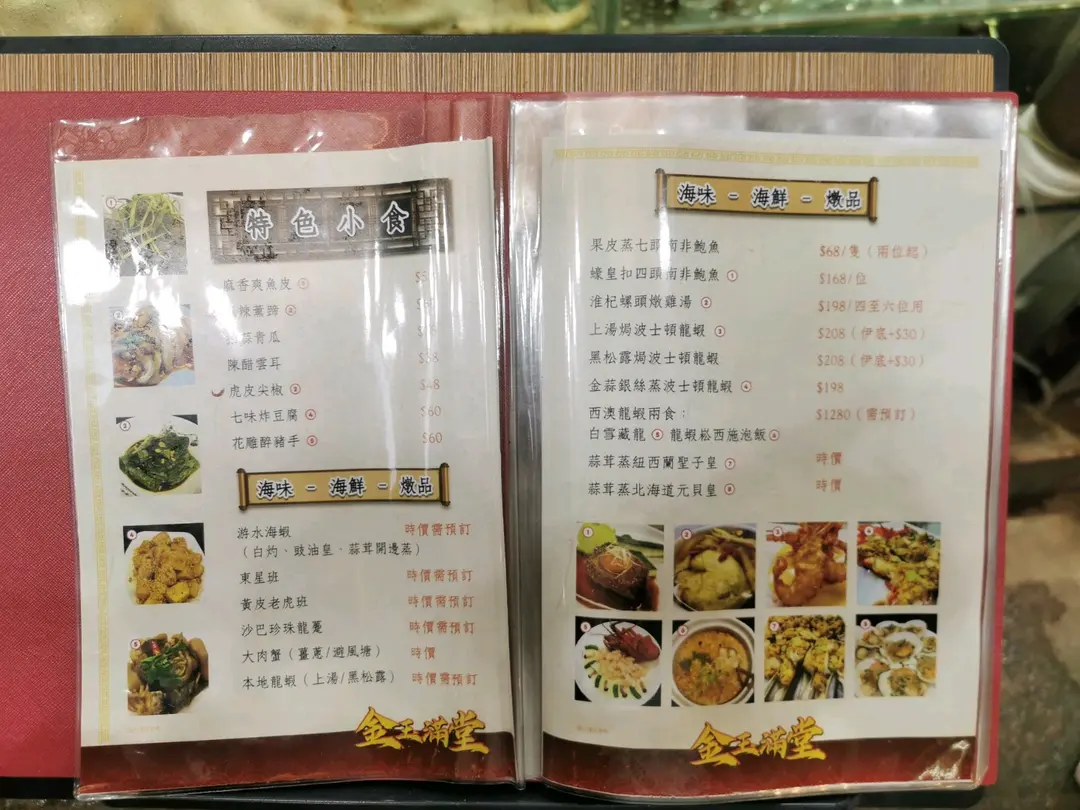 特色小食
麻香爽魚皮 ①
辣薰蹄 ②
蒜青瓜
陳醋雲耳
虎皮尖椒 ③ $48
七味炸豆腐 ④ $60
花雕醉豬手 ⑤ $60
海味 - 海鮮 - 燉品
游水海蝦 時價需預訂
（白灼、豉油皇、蒜茸開邊蒸）
東星班 時價需預訂
黃皮老虎班 時價需預訂
沙巴珍珠龍躉 時價需預訂
大肉蟹（薑蔥/避風塘） 時價
本地龍蝦（上湯/黑松露） 時價需預訂
金玉滿堂
海味 - 海鮮 - 燉品
果皮蒸七頭南非鮑魚 $68/隻（兩位起）
蠔皇扣四頭南非鮑魚 ① $168/位
淮杞螺頭燉雞湯 ② $198/四至六位用
上湯焗波士頓龍蝦 ③ $208（伊底+$30）
黑松露焗波士頓龍蝦 $208（伊底+$30）
金蒜銀絲蒸波士頓龍蝦 ④ $198
西澳龍蝦兩食： $1280（需預訂）
白雪藏龍 ⑤ 龍蝦崧西施泡飯 ⑥
蒜茸蒸紐西蘭聖子皇 ⑦ 時價
蒜茸蒸北海道元貝皇 ⑧ 時價
金玉滿堂